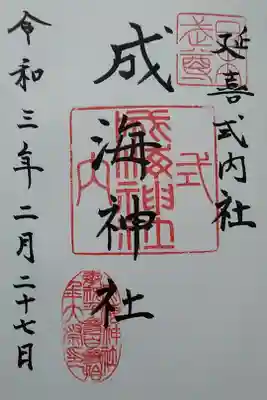 延喜式内社
成海神社
式内
成海神社
令和三年二月二十七日